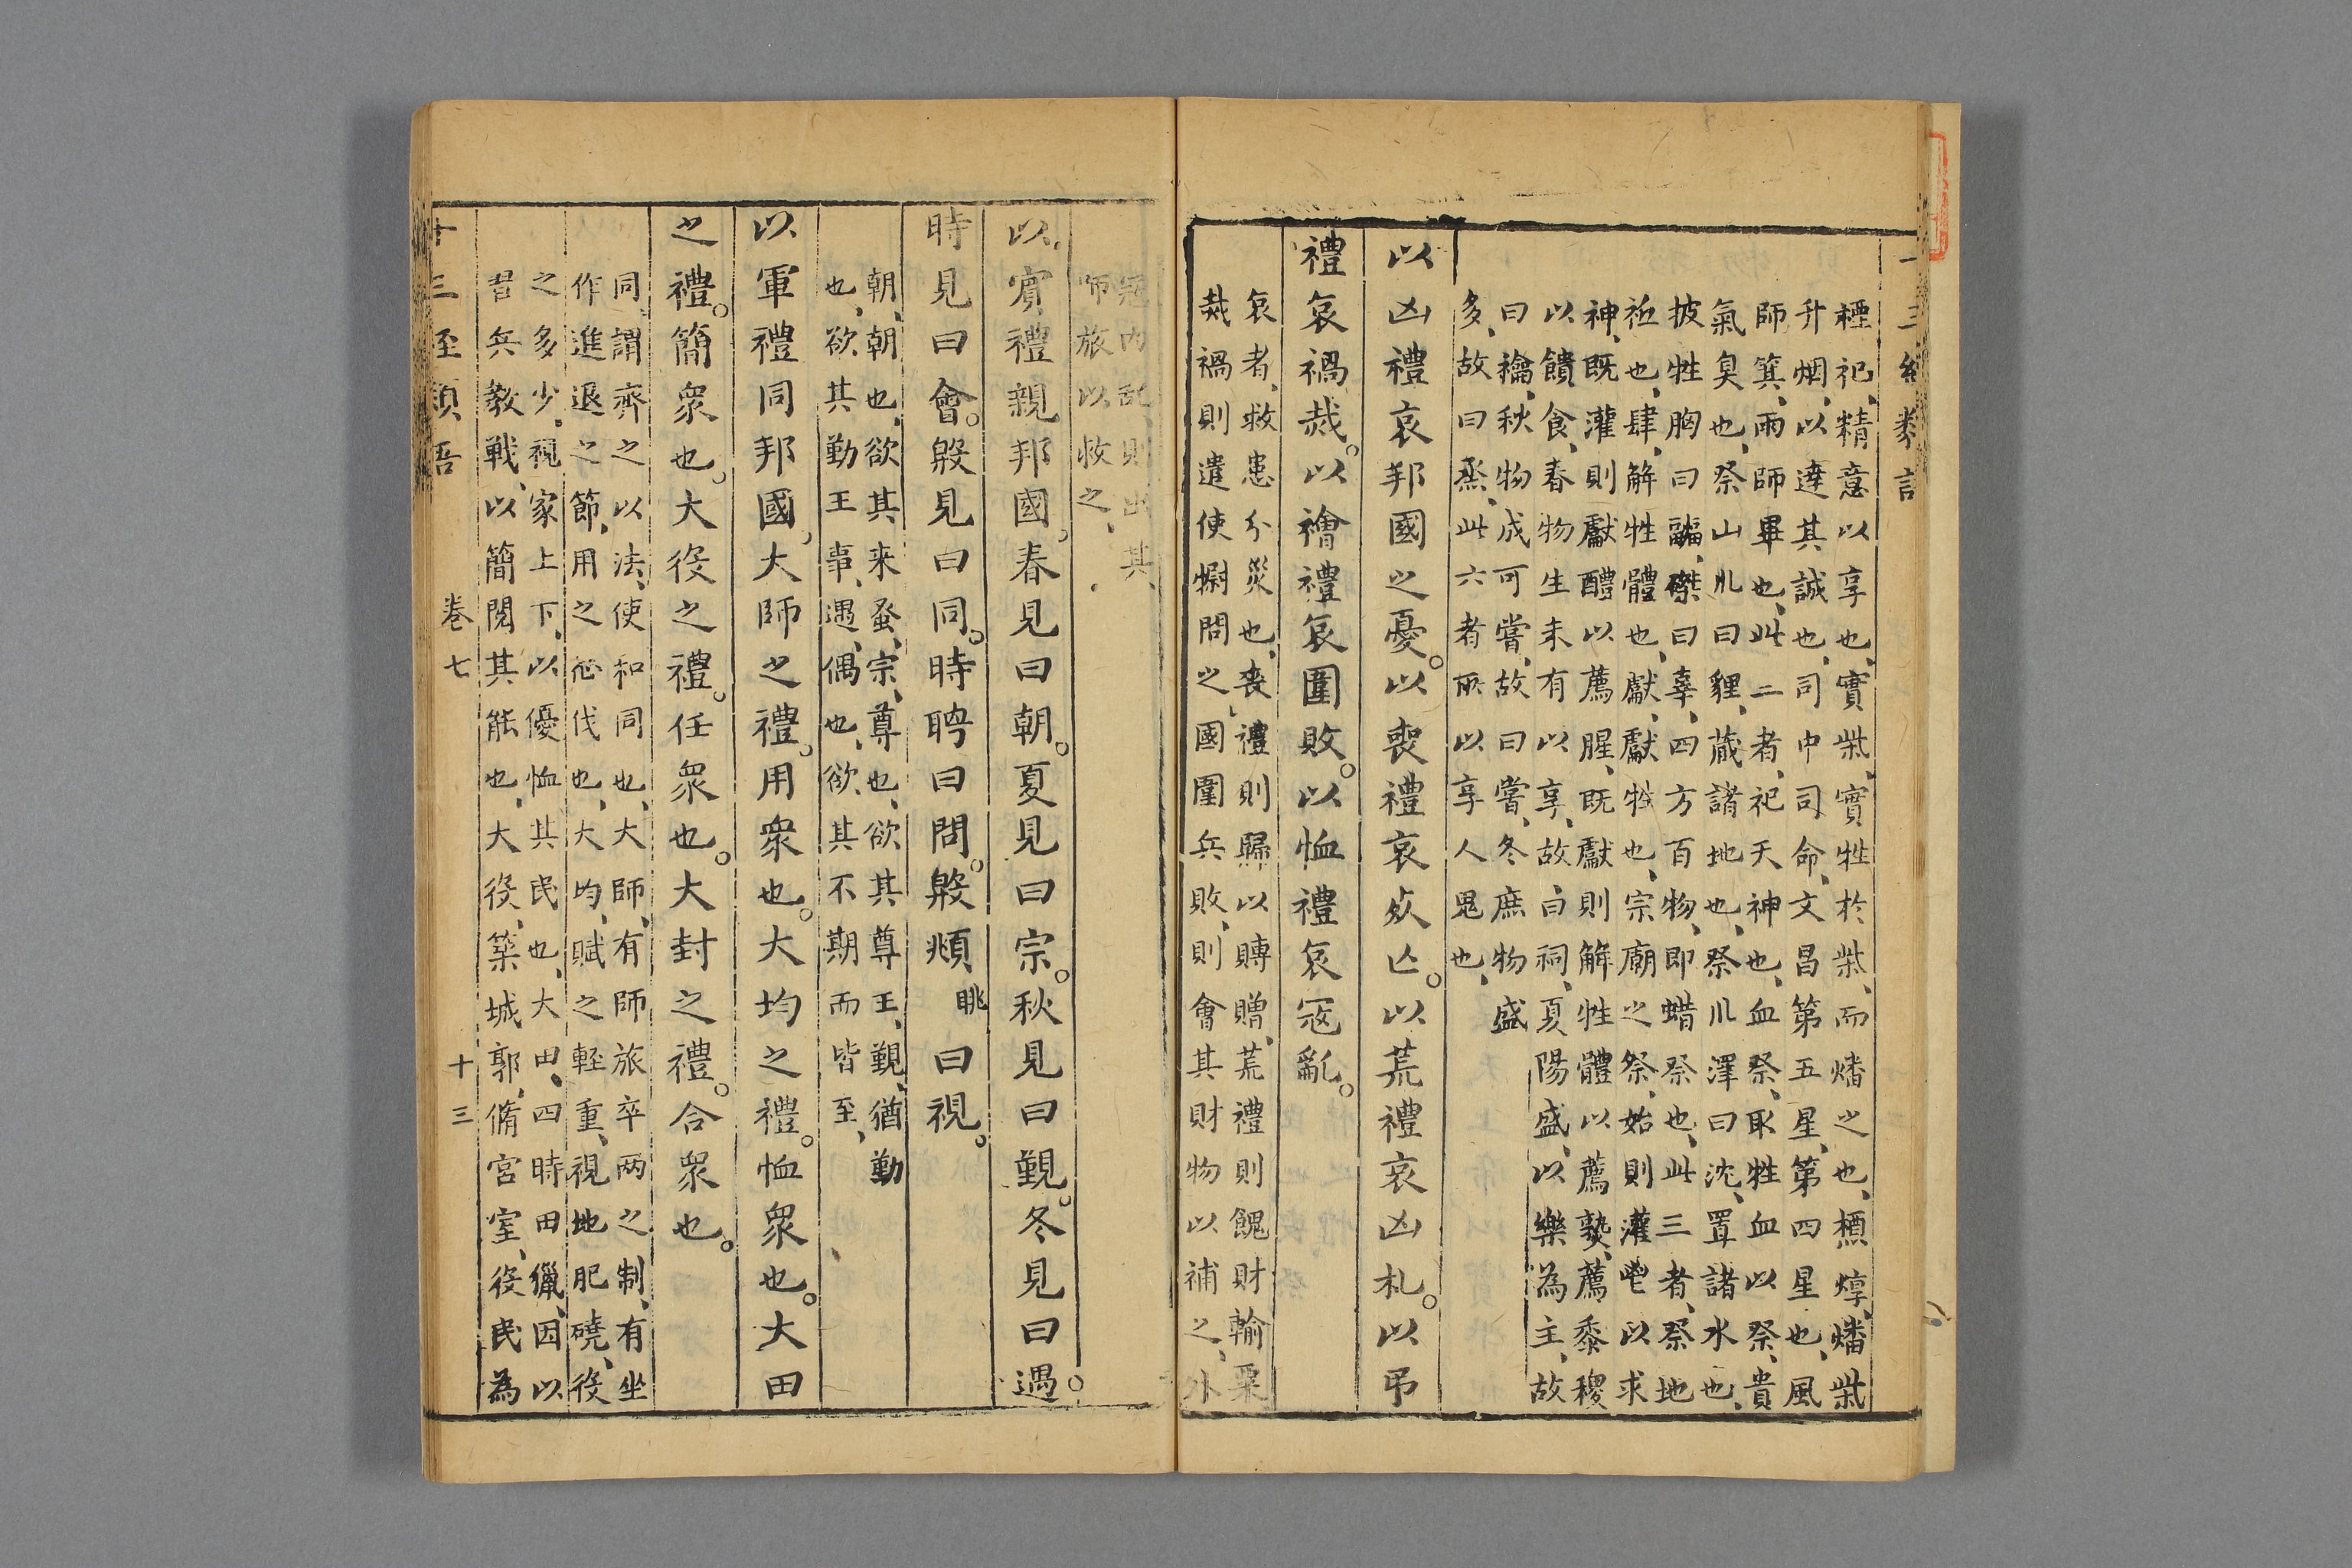 禋祀、精意以享也、實柴、實牲於柴、而燔之也、槱燎、燔柴
升烟、以達其誠也、司中司命、文昌第五星、第四星也、風
師箕、雨師畢也、此二者、祀天神也、血祭、取牲血以祭、貴
氣臭也、祭山川曰貍、藏諸地也、祭川澤曰沈、置諸水也、
披牲胸曰疈、磔曰辜、四方百物、即蜡祭也、此三者、祭地
祗也、肆、解牲體也、獻、獻牲也、宗廟之祭、始則灌鬯以求
神、既灌則獻醴以薦腥、既獻則解牲體以薦孰、薦黍稷
以饋食、春物生未有以享、故曰祠、夏陽盛、以樂為主、故
曰禴、秋物成可嘗、故曰嘗、冬庶物盛
多、故曰烝、此六者所以享人鬼也、
以凶禮哀邦國之憂。以喪禮哀死亡。以荒禮哀凶札。以弔
禮哀禍烖。以禬禮哀圍敗。以恤禮哀寇亂。
哀者、救患分災也、喪禮則歸以賻贈、荒禮則餽財輸粟
烖禍則遣使慰問之、國圍兵敗、則會其財物以補之、外
寇内乱、則出其
師旅以救之、
以賓禮親邦國。春見曰朝。夏見曰宗。秋見曰覲。冬見曰遇。
時見曰會。殷見曰同。時聘曰問。殷頫眺曰視。
朝、朝也、欲其来蚤、宗、尊也、欲其尊王、覲、猶勤
也、欲其勤王事、遇、偶也、欲其不期而皆至、
以軍禮同邦國。大師之禮。用衆也。大均之禮。恤衆也。大田
之禮。簡衆也。大役之禮。任衆也。大封之禮。合衆也。
同、謂齊之以法、使和同也、大師、有師旅卒两之制、有坐
作進退之節、用之征伐也、大均、賦之輕重、視地肥磽、役
之多少、視家上下、以優恤其民也、大田、四時田獵、因以
習兵教戰、以簡閱其能也、大役、築城郭、脩宮室、役民為
十三經類語 卷七 十三